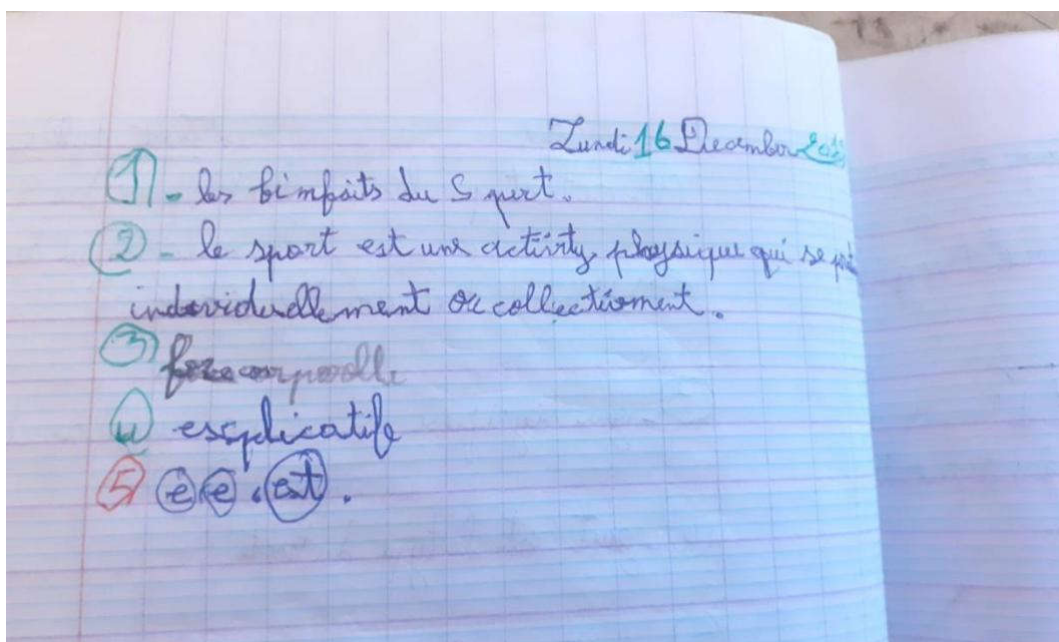 Lundi 16 December
1 - les bimfaits du Sport.
2 - le sport est une activity physique qui se
individuellement ou collectivment.
3
4 esxplicatif
5 e e . est .